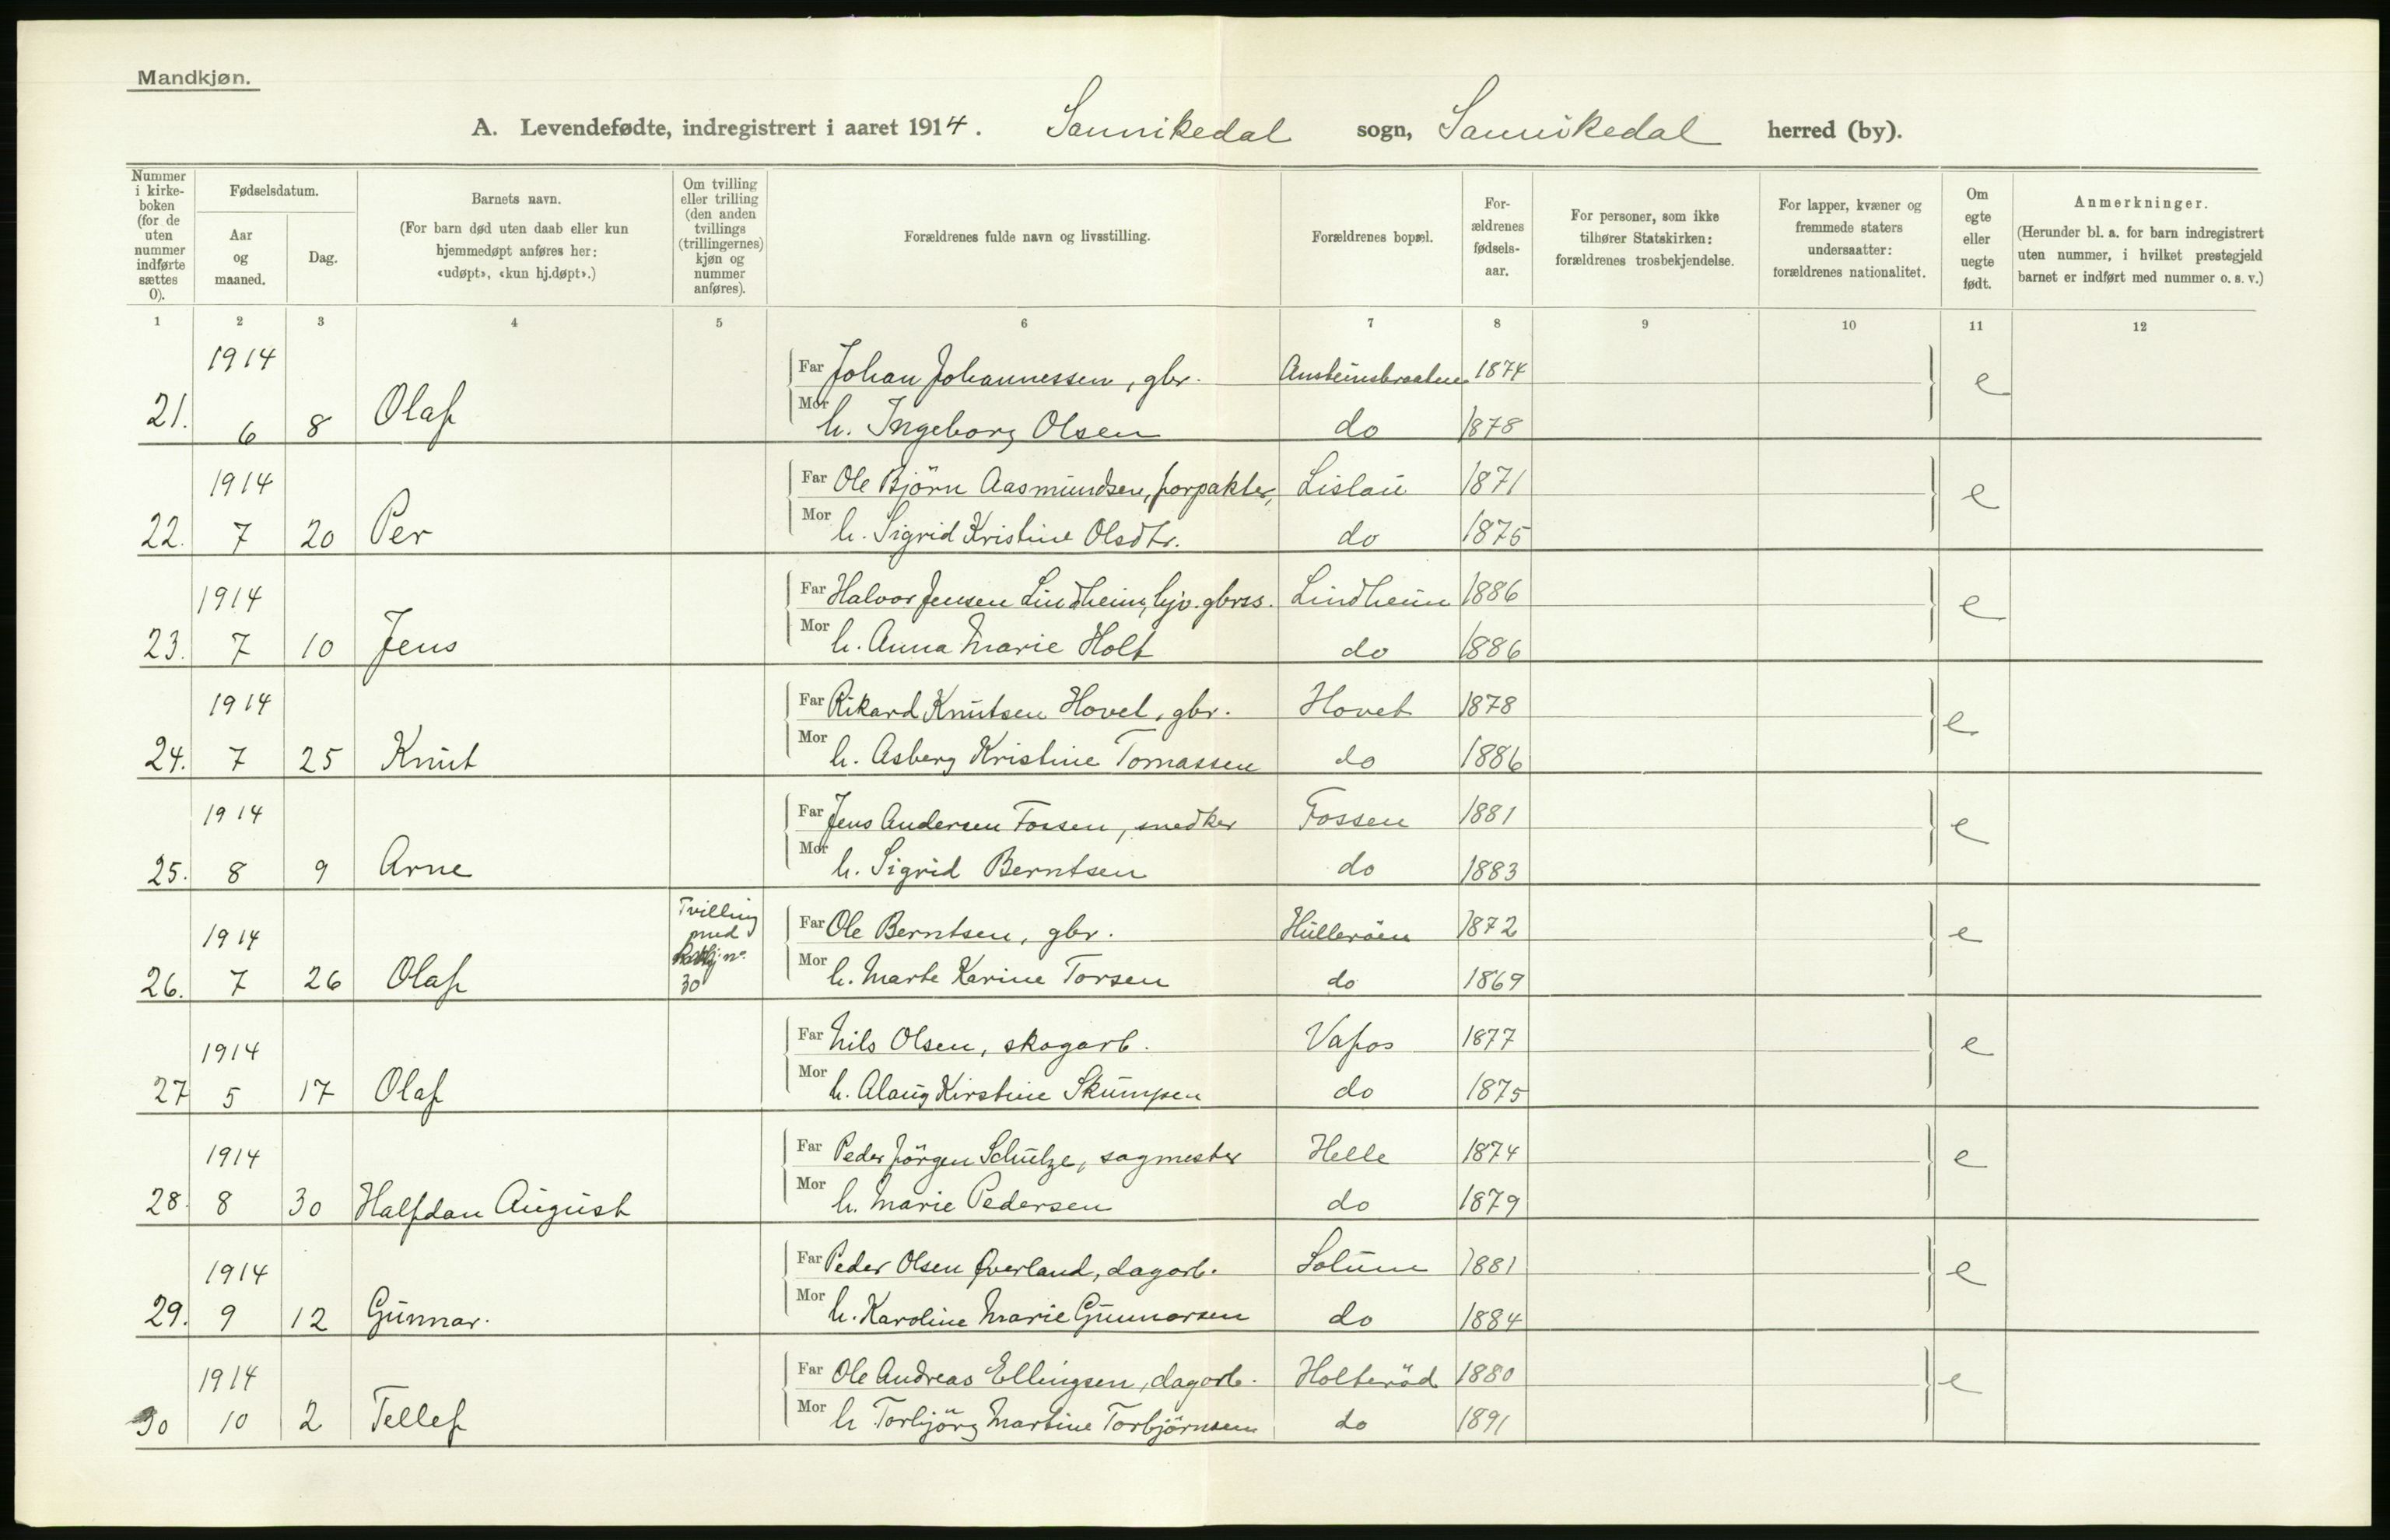 Mandkjøn.
A. Levendefødte, indregistrert i aaret 1914. Sannikedal sogn, Sannikedal herred (by).
Nummer i kirke-boken (for de uten nummer indførte sættes 0).
Fødselsdatum.
Aar og maaned.
Dag.
Barnets navn.
(For barn død uten daab eller kun hjemmedøpt anføres her: «udøpt», «kun hj.døpt».)
Om tvilling eller trilling (den anden tvillings (trillingernes) kjøn og nummer anføres).
Forældrenes fulde navn og livsstilling.
Forældrenes bopæl.
For-ældrenes fødsels-aar.
For personer, som ikke tilhører Statskirken: forældrenes trosbekjendelse.
For lapper, kvæner og fremmede staters undersaatter: forældrenes nationalitet.
Om egte eller uegte født.
Anmerkninger.
(Herunder bl. a. for barn indregistrert uten nummer, i hvilket prestegjeld barnet er indført med nummer o. s. v.)
1 2 3 4 5 6 7 8 9 10 11 12
1914 Far Johan Johannessen, gbr. Ansteinsbraaten 1874 e
21. 6 8 Olaf Mor h. Ingeborg Olsen do 1878
1914 Far Ole Björn Aasmundsen, forpakter, Lislau 1871 e
22. 7 20 Per Mor h. Sigrid Kristine Olsdtr. do 1875
1914 Far Halvor Jensen Lindheim, hjv. gbrss. Lindheim 1886 e
23. 7 10 Jens Mor h. Anna Marie Holt do 1886
1914 Far Rikard Knutsen Hovet, gbr. Hovet 1878 e
24. 7 25 Knut Mor h. Asberg Kristine Tomassen do 1886
1914 Far Jens Andersen Fossen, snedker Fossen 1881 e
25. 8 9 Arne Mor h. Sigrid Berntsen do 1883
1914 Tvilling med Far Ole Berntsen, gbr. Hulleröen 1872 e
26. 7 26 Olaf no. 30 Mor h. Marte Karine Torsen do 1869
1914 Far Nils Olsen, skogarb. Vafos 1877 e
27 5 17 Olaf Mor h. Alaug Kirstine Skumpen do 1875
1914 Far Peder Jörgen Schulze, sagmester Helle 1874 e
28. 8 30 Halfdan August Mor h. Marie Pedersen do 1879
1914 Far Peder Olsen Øverland, dagarb. Solum 1881 e
29. 9 12 Gunnar. Mor h. Karoline Marie Gunnarsen do 1884
1914 Far Ole Andreas Ellingsen, dagarb. Holteröd 1880 e
30 10 2 Tellef Mor h Torbjörg Martine Torbjörnsen do 1891